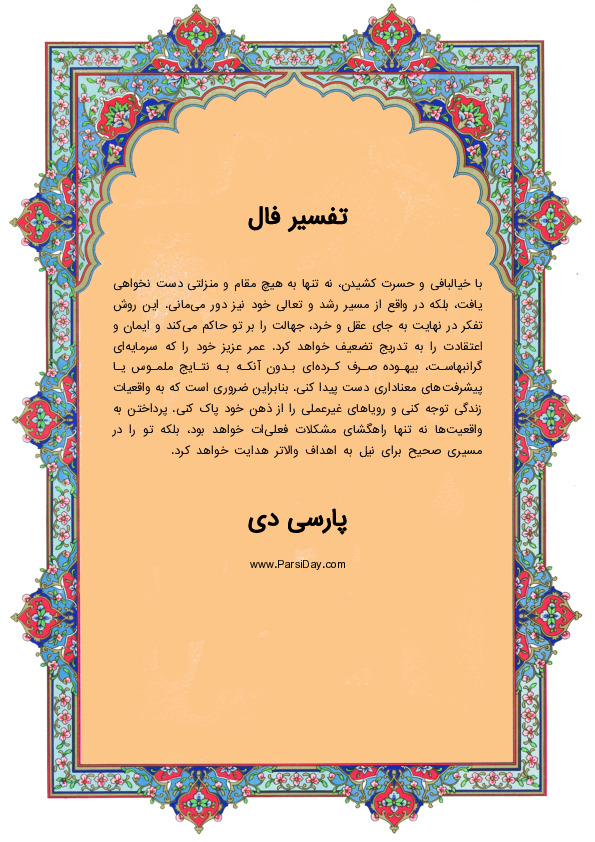 تفسیر فال
با خیالبافی و حسرت کشیدن، نه تنها به هیچ مقام و منزلتی دست نخواهی
یافت، بلکه در واقع از مسیر رشد و تعالی خود نیز دور می‌مانی. این روش
تفکر در نهایت به جای عقل و خرد، جهالت را بر تو حاکم می‌کند و ایمان و
اعتقادت را به تدریج تضعیف خواهد کرد. عمر عزیز خود را که سرمایه‌ای
گرانبهاست، بیهوده صرف کرده‌ای بدون آنکه به نتایج ملموس یا
پیشرفت‌های معناداری دست پیدا کنی. بنابراین ضروری است که به واقعیات
زندگی توجه کنی و رویاهای غیرعملی را از ذهن خود پاک کنی. پرداختن به
واقعیت‌ها نه تنها راهگشای مشکلات فعلی‌ات خواهد بود، بلکه تو را در
مسیری صحیح برای نیل به اهداف والاتر هدایت خواهد کرد.
پارسی دی
www.ParsiDay.com